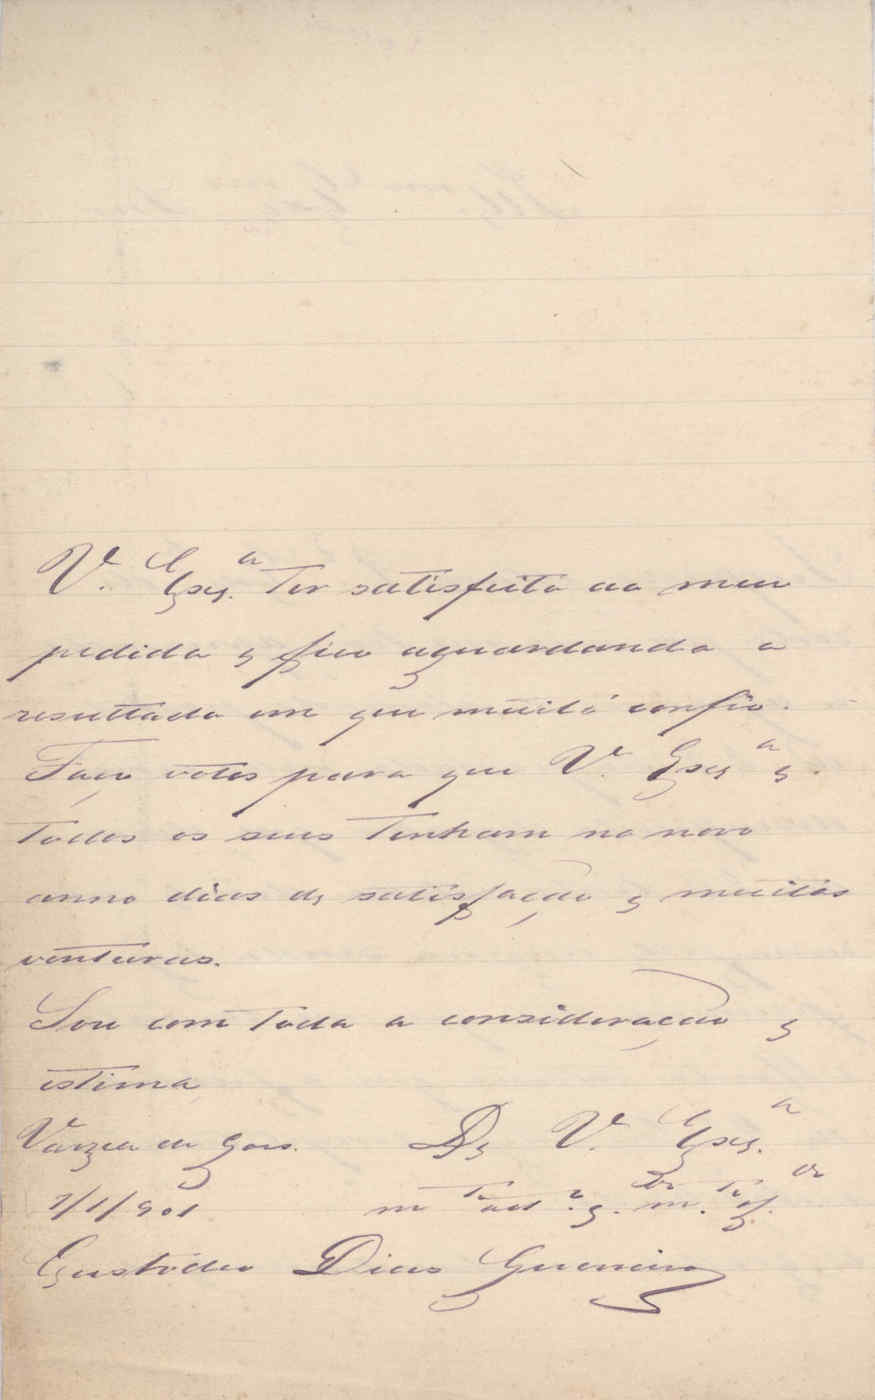 V. Exc.ª ter satisfeito ao meu
pedido e fico aguardando o
resultado em que muito confio.
Faço votos para que V. Exc.ª e
todos os seus tenham no novo
anno dias de satisfação e muitas
venturas.
Sou com toda a consideração e
estima
Varzea de Goes. De V. Exc.ª
1/1/901 m.to ad.or e m.to
Custodio Dias Guerreiro